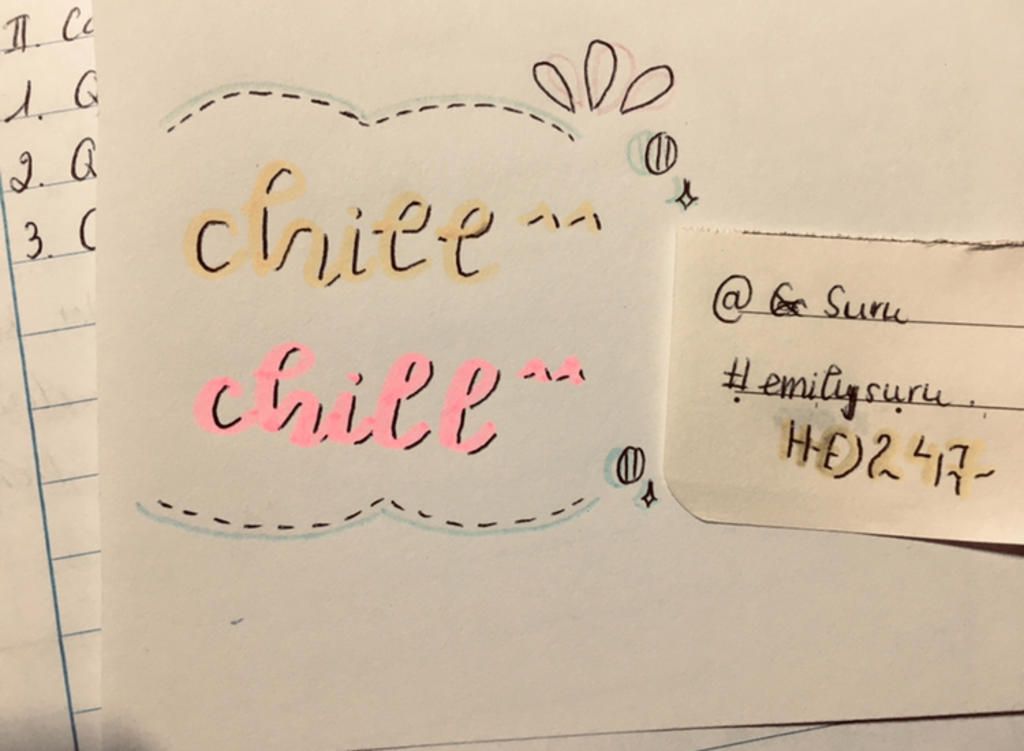 II. Co
1. Q
2. Q
3. C
chill ^^
chill ^^
@ Suru
#emilysuru.
H-E)247~